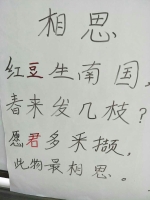 相思
红豆生南国，
春来发几枝？
愿君多采撷，
此物最相思。